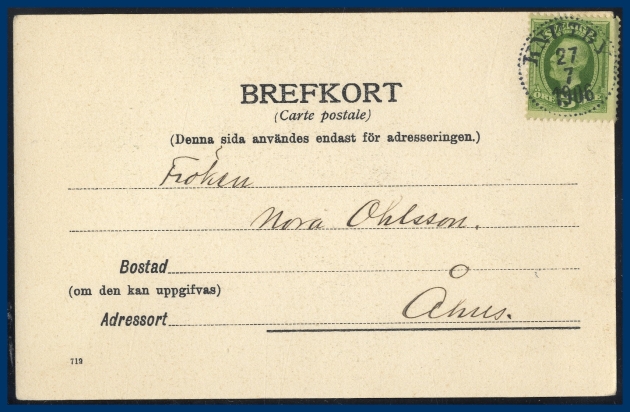 KNUTBY
27
7
1906
BREFKORT
(Carte postale)
(Denna sida användes endast för adresseringen.)
Fröken
Nora Ohlsson.
Bostad
(om den kan uppgifvas)
Åhus.
Adressort
719